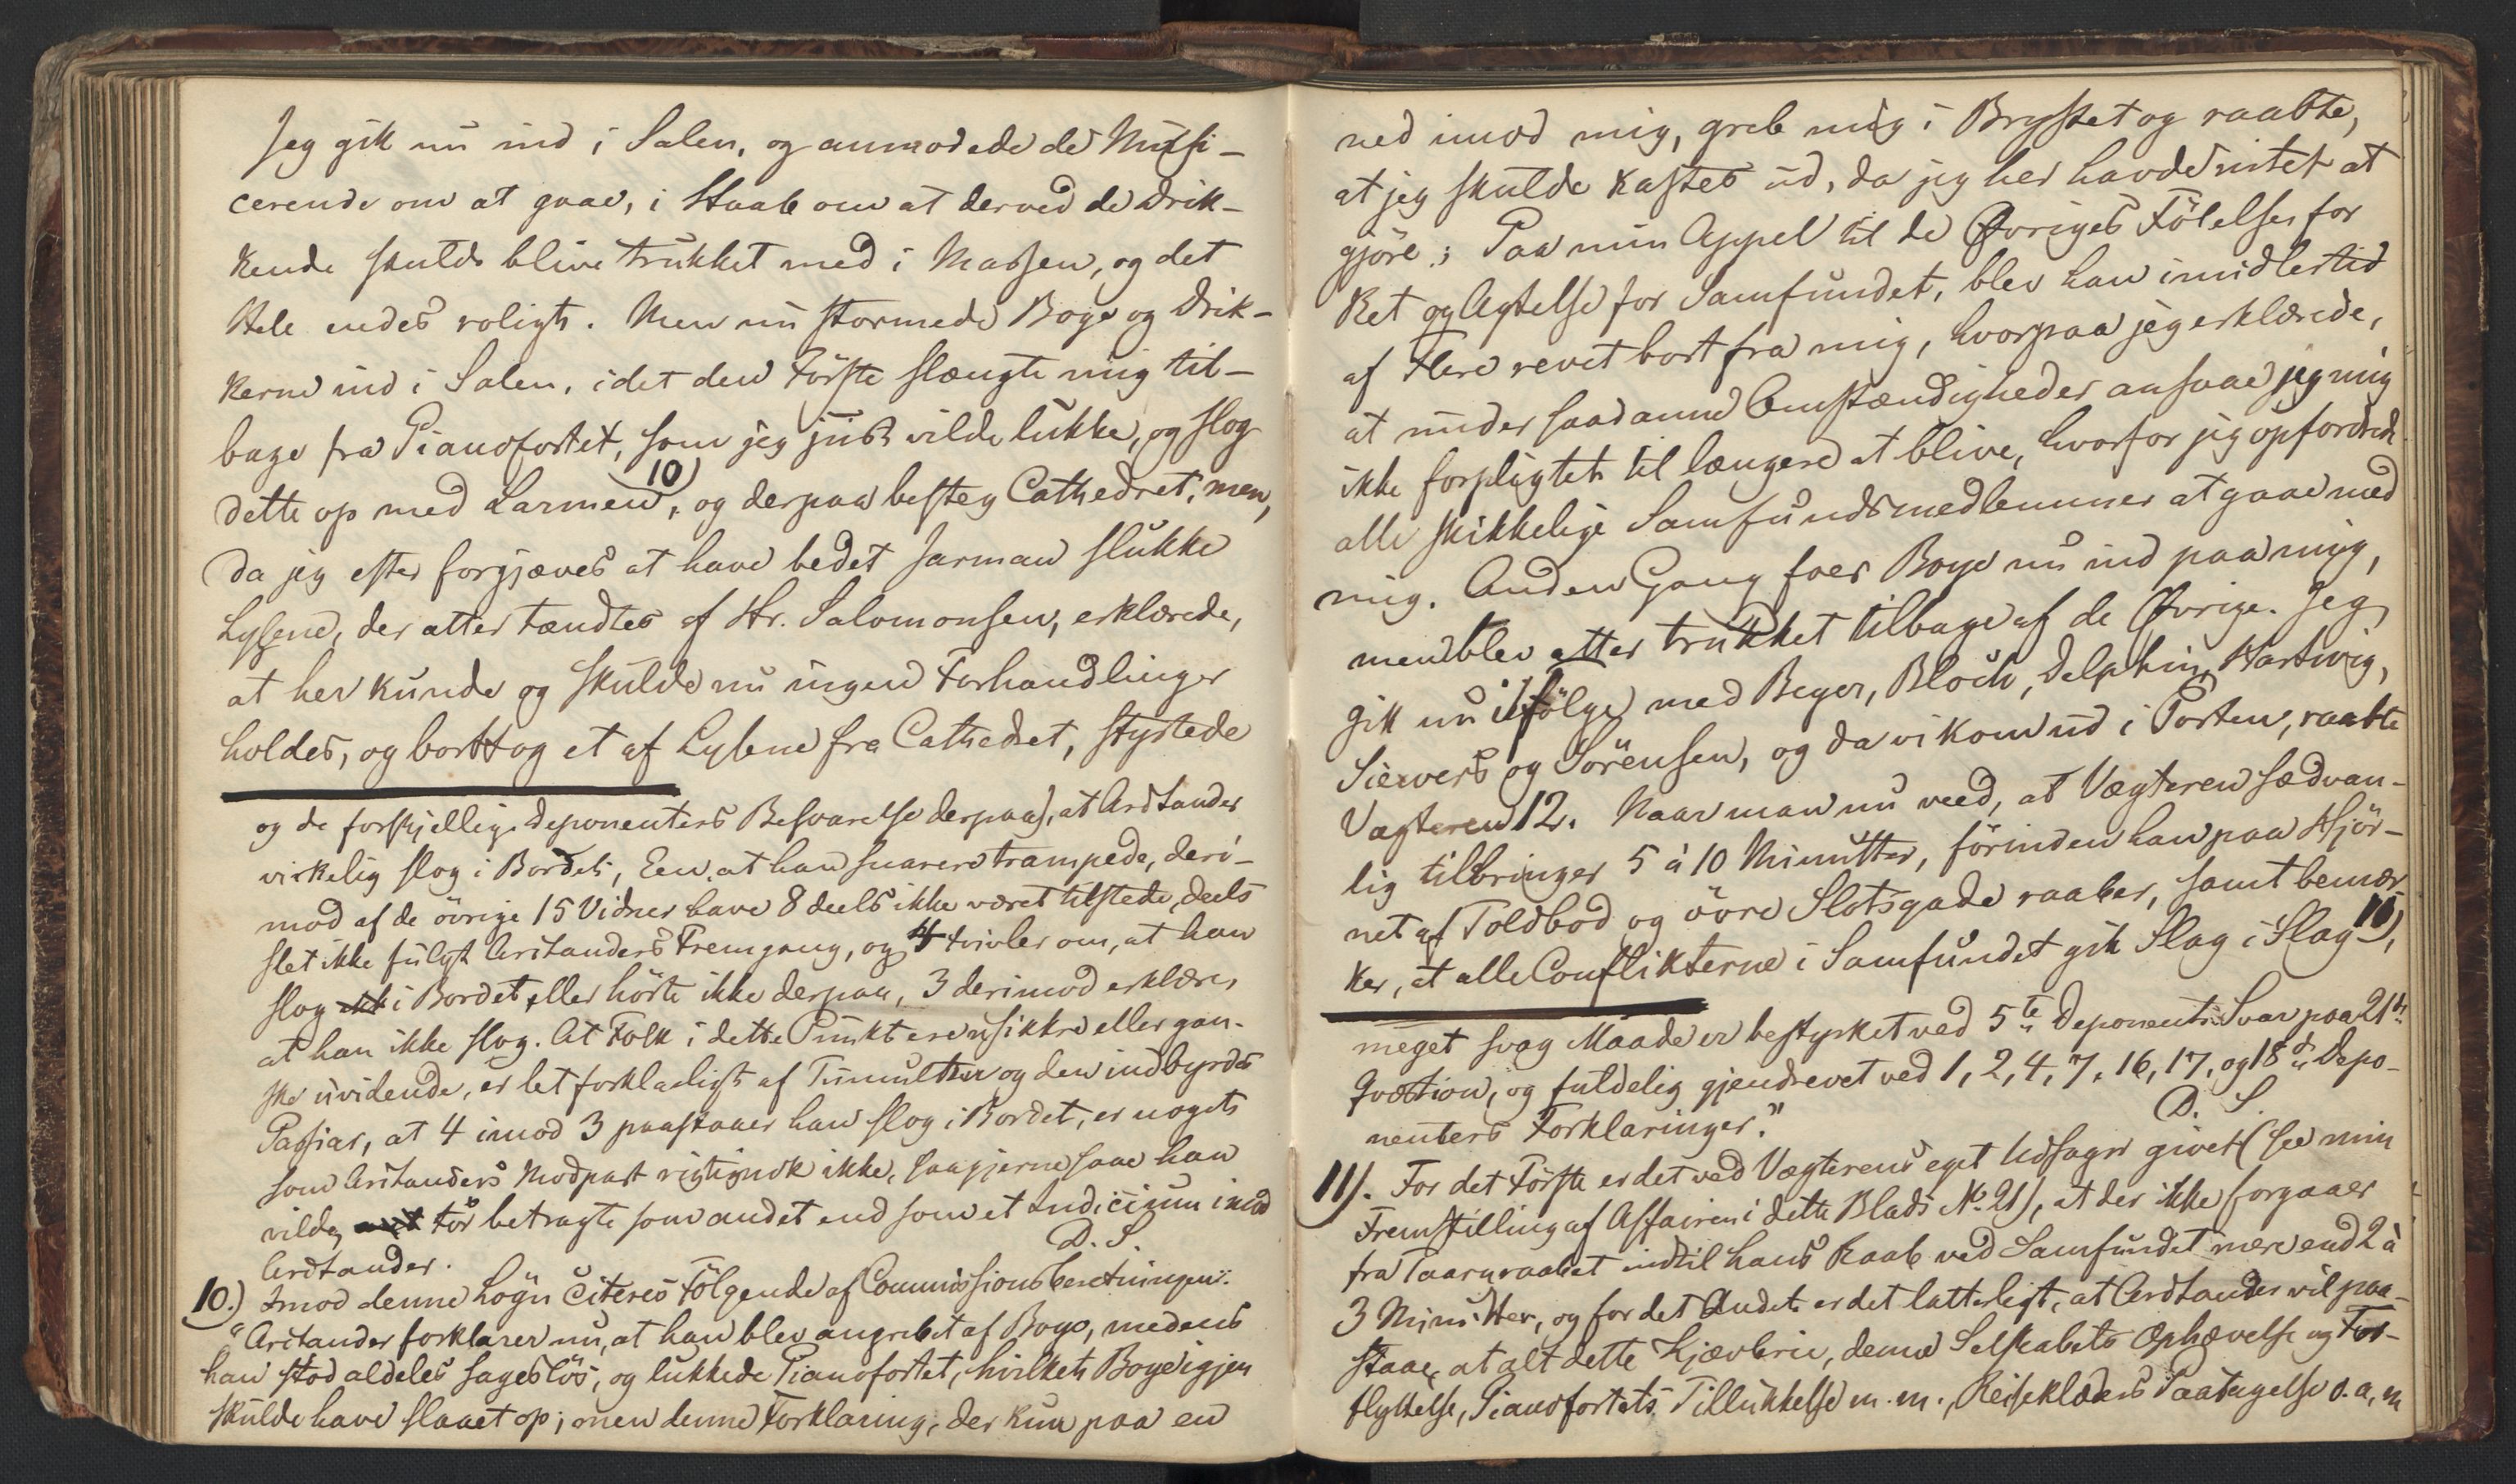 Jeg gik nu ind i Salen, og anmodede de Musi-
cerende om at gaae, i Haab om at derved de Drik-
kende skulde blive trukket med i Massen, og det
Hele endes roligt. Men nu stormede Boye og Drik-
kerne ind i Salen, idet den Förste slængte mig til-
bage fra Pianofortet, som jeg just vilde lukke, og slog
dette op med Larmen 10), og derpaa besteg Cathedret; men,
da jeg efter forgjæves at have bedet Jarman slukke
Lysene, der atter tændtes af Hr. Salomonsen, erklærede,
at her kunde og skulde nu ingen Forhandlinger
holdes, og borttog et af Lysene fra Cathedret, styrtede
og de forskjellige Deponenters Besvarelse derpaa), at Aristander
virkelig slog i Bordet, Een, at han snarere trampede, deri-
mod af de övrige 15 Vidner have 8 deels ikke været tilstede, deels
slet ikke fulgt Aristanders Fremgang, og 4 tvivler om, at han
slog i Bordet eller hörte ikke derpaa, 3 derimod erklærer
at han ikke slog. At Folk i dette Punkt ere usikkre eller gan-
ske uvidende, er let forklarligt af Tumulten og den indbyrdes
Passiar, at 4 imod 3 paastaaer han slog i Bordet, er noget
som Aristanders Modpart rigtignok ikke, saa gjerne saae han
vilde, tör betragte som andet end som et Indicium imod
Aristander. D. S.
10.) Imod denne Lögn citeres Fölgende af Commissionsberetningen:
"Aristander forklarer nu, at han blev angrebet af Boye, medens
han stod aldeles sageslös, og lukkede Pianofortet, hvilket Boye igjen
skulde have slaaet op; men denne Forklaring, der kun paa en
ned imod mig, greb mig i Brystet og raabte,
at jeg skulde kastes ud, da jeg her havde intet at
gjöre; Paa min Appel til de Øvriges Fölelse for
Ret og Agtelse for Samfundet, blev han imidlertid
af Flere revet bort fra mig, hvorpaa jeg erklærede,
at under saadanne Omstændigheder ansaae jeg mig
ikke forpligtet til længere at blive, hvorfor jeg opfordrede
alle skikkelige Samfundsmedlemmer at gaae med
mig. Anden Gang foer Boye nu ind paa mig,
men blev atter trukket tilbage af de Øvrige. Jeg
gik nu i fölge med Beyer, Bloch, Delphin, Hartwig,
Siewers og Sörensen, og da vi kom ud i Porten, raabte
Vægteren 12. Naar man nu veed, at Vægteren sædvan-
lig tilbringer 5 à 10 Minutter, förinden han paa Hjör-
net af Toldbod og övre Slotsgade raaber, samt bemær-
ker, at alle Conflikterne i Samfundet gik Slag i Slag 11),
meget svag Maade er bestyrket ved 5te Deponents Svar paa 21de
Qvæstion, og fuldelig gjendrevet ved 1, 2, 4, 7, 16, 17, og 18de Depo-
nenters Forklaringer." D. S.
11). For det Förste er det ved Vægterens eget Udsagn givet (see min
Fremstilling af Affairen i dette Blads No. 21), at der ikke forgaaer
fra Taarnraabet indtil hans Raab ved Samfundet mere end 2 à
3 Minutter, og for det Andet er det latterligt, at Aristander vil paa-
staae, at alt dette Kjævlerie, denne Selskabets Ophævelse og For-
flyttelse, Pianofortets Tillukkelse m. m., Reiseklæders Paatagelse o. a. m